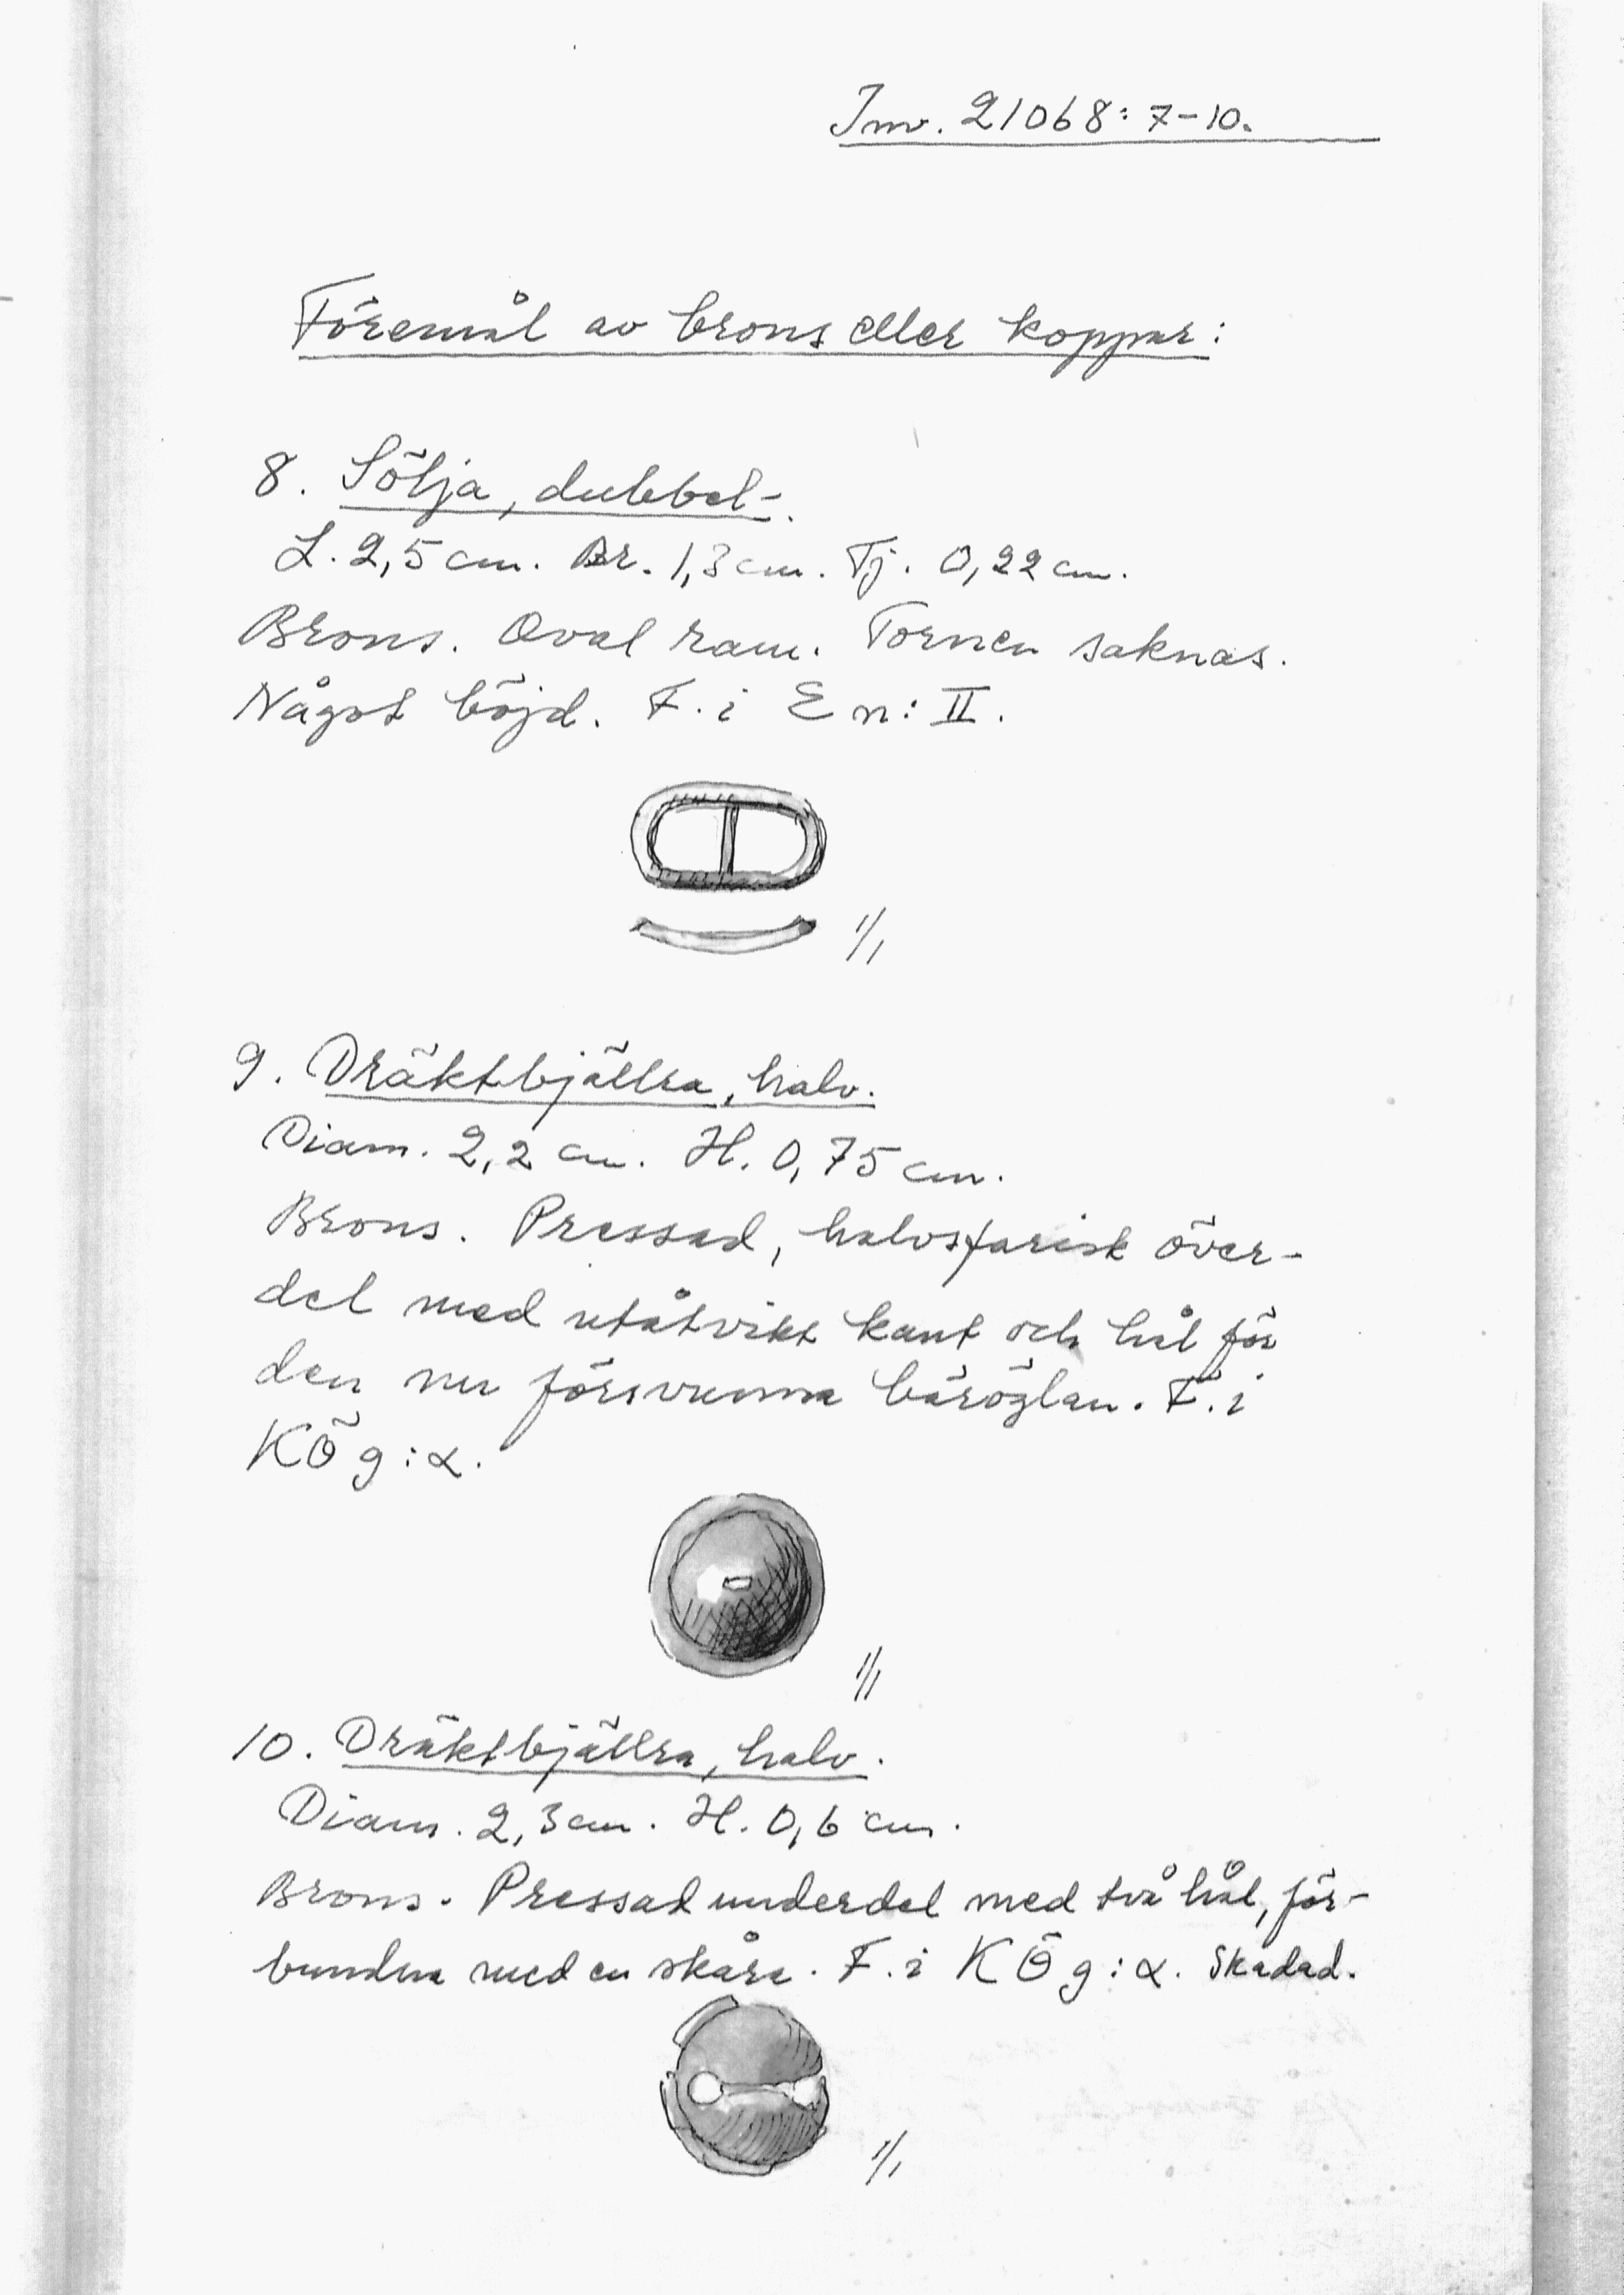 Inv. 21068: 7-10.
Föremål av brons eller koppar:
8. Sölja, dubbel-.
L. 2,5 cm. Br. 1,3 cm. Tj. 0,22 cm.
Brons. Oval ram. Tornen saknas.
Något böjd. F. i E n: II.
1/1
9. Dräktbjällra, halv.
Diam. 2,2 cm. H. 0,75 cm.
Brons. Pressad, halvsfarisk över-
del med utåtvikt kant och hål för
den nu försvunna böröglan. F. i
KÖ g: α.
1/1
10. Dräktbjällra, halv.
Diam. 2,3 cm. H. 0,6 cm.
Brons. Pressad underdel med två hål, för-
bundna med en skåra. F. i KÖ g: α. Skadad.
1/1